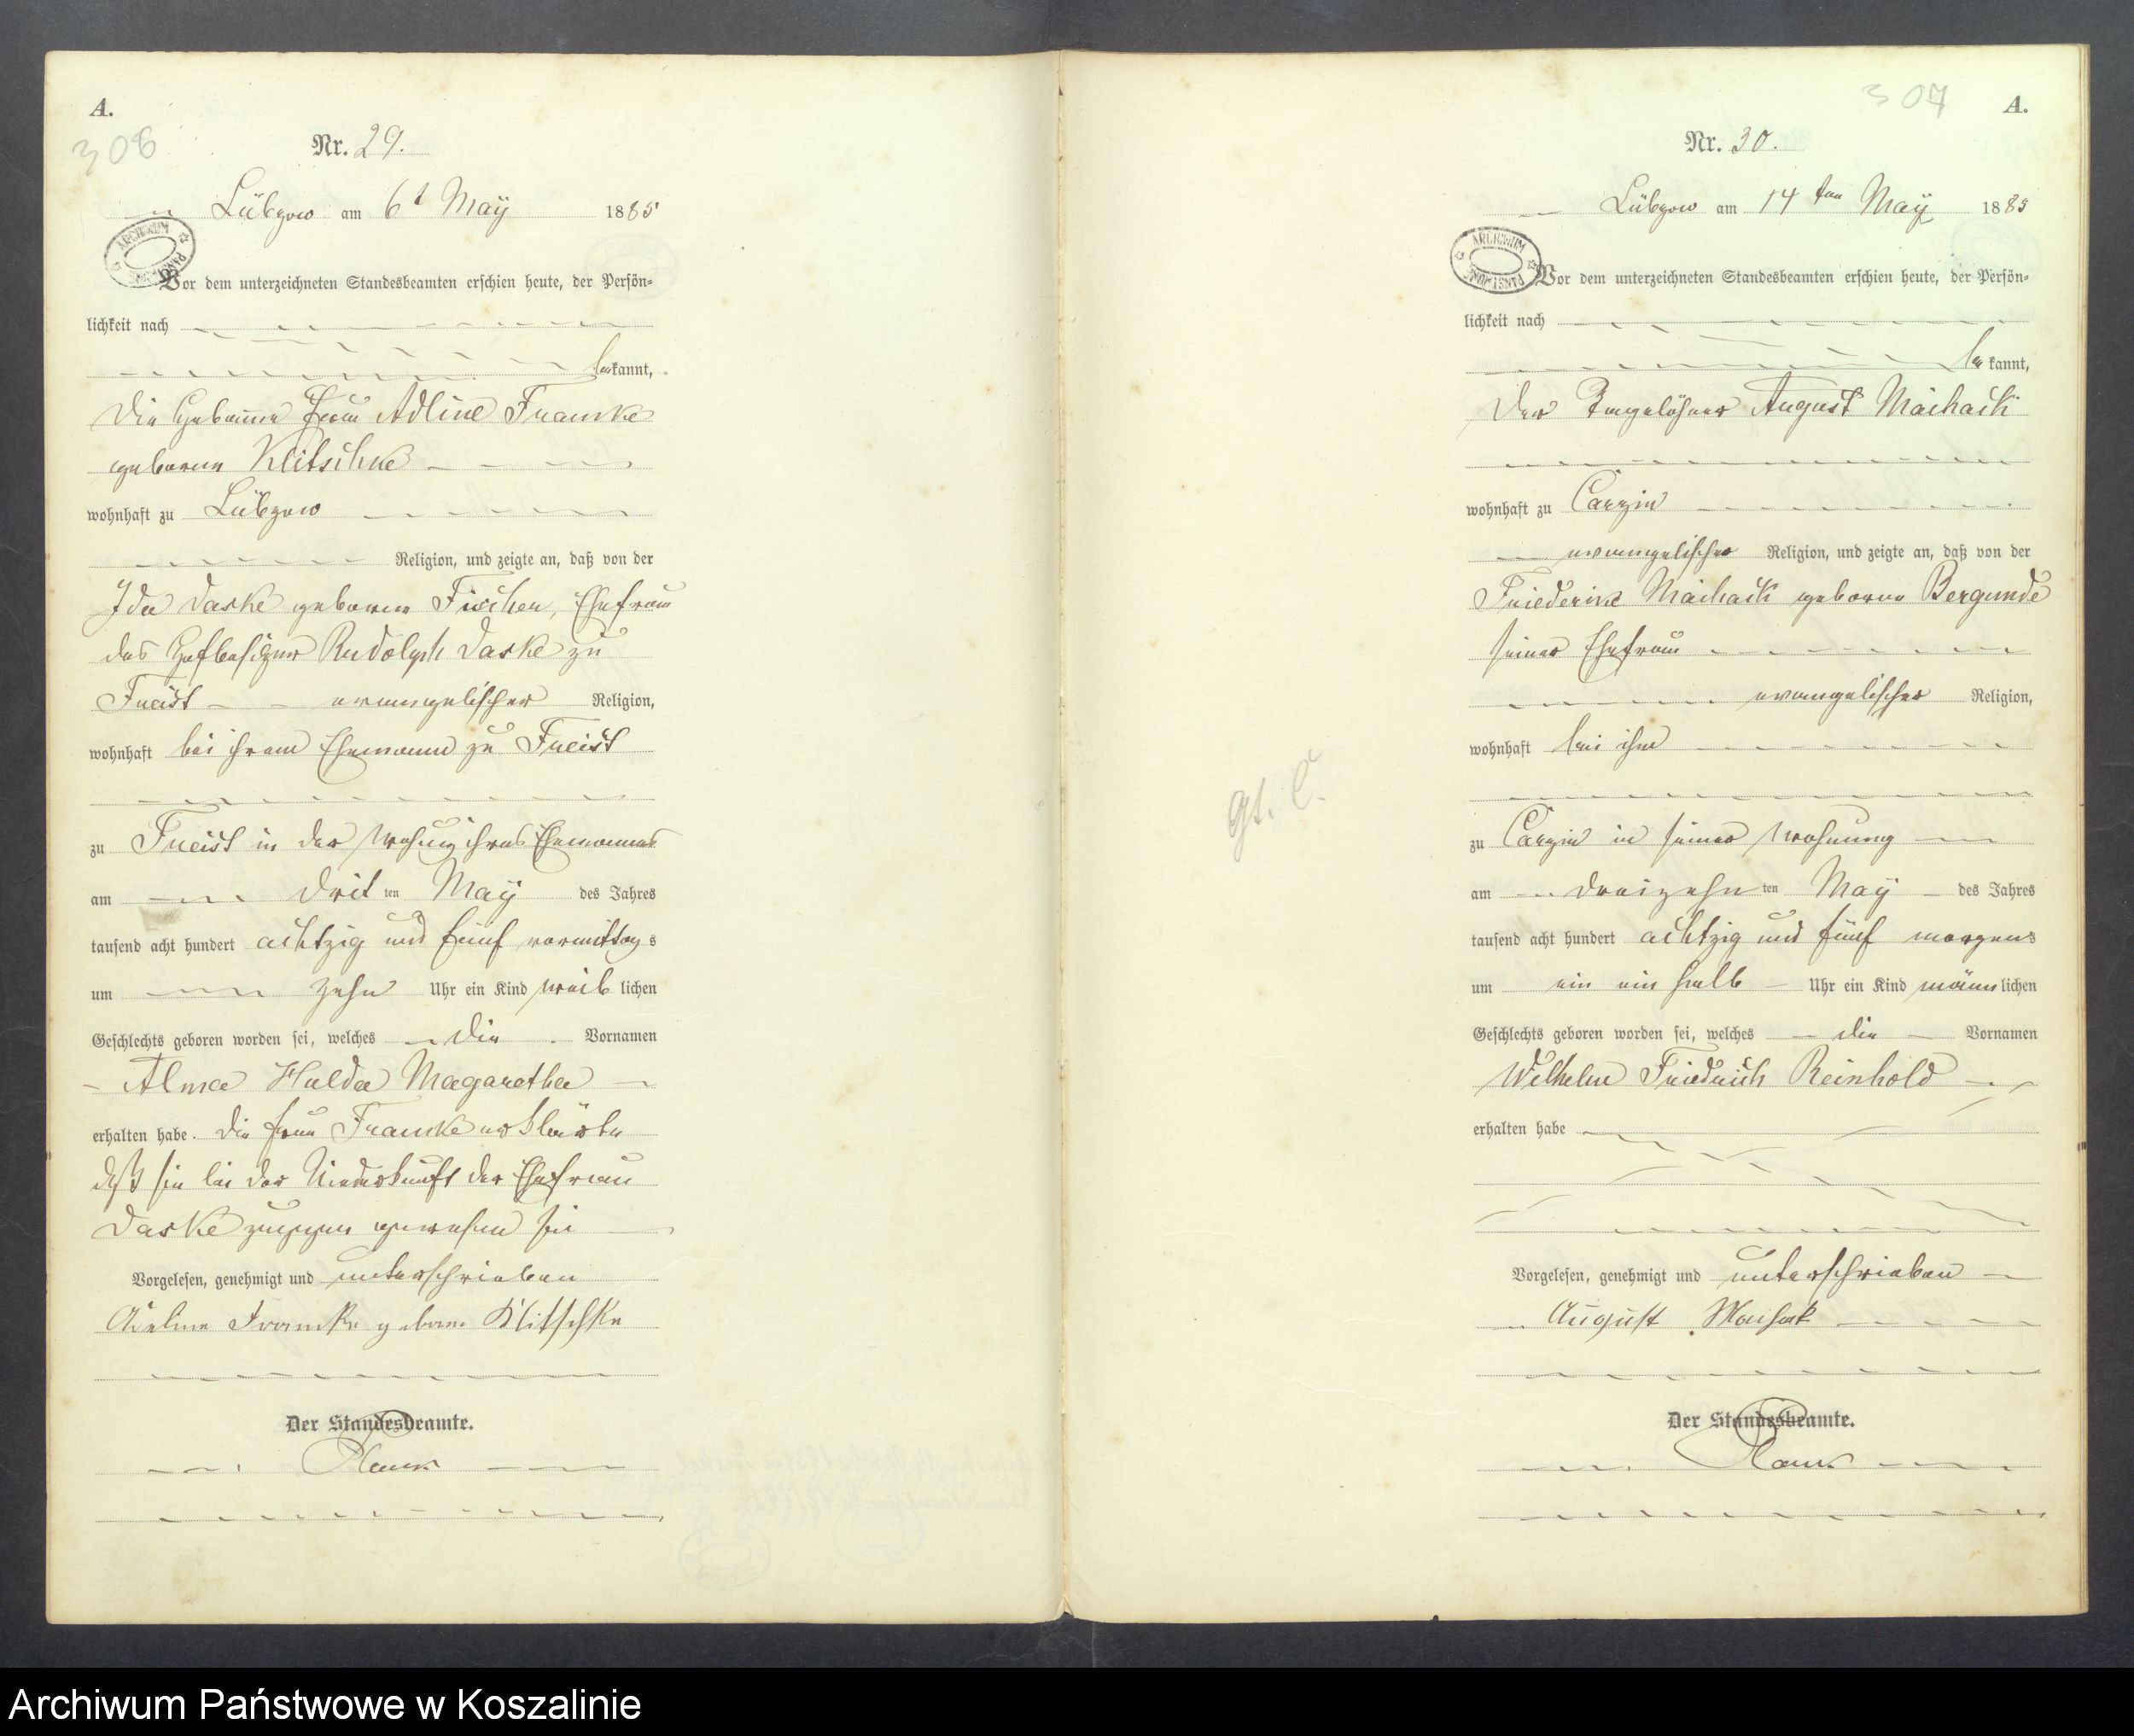 A.
306
Nr. 29.
Lübzow am 6t May 1885
ARCHIWUM PAŃSTWOWE
Vor dem unterzeichneten Standesbeamten erschien heute, der Persön-
lichkeit nach
bekannt,
die Hebamme Frau Adline Franke
geborne Klitschke
wohnhaft zu Lübzow
Religion, und zeigte an, daß von der
Ida Daske geborne Fischer, Ehefrau
des Hofbesitzer Rudolph Daske zu
Freist evangelischer Religion,
wohnhaft bei ihrem Ehemann zu Freist
zu Freist in der Wohung ihres Ehemannes
am Dritten May des Jahres
tausend acht hundert achtzig und fünf vormittags
um zehn Uhr ein Kind weiblichen
Geschlechts geboren worden sei, welches die Vornamen
Alma Hulda Magaretha
erhalten habe. die Frau Franke erklärte
daß sie bei der Niederkunft der Ehefrau
Daske zugegen gewesen sei
Vorgelesen, genehmigt und unterschrieben
Adeline Franke geborne Klitschke
Der Standesbeamte.
A.
307
Nr. 30.
Lübzow am 14ten May 1885
ARCHIWUM PAŃSTWOWE
Vor dem unterzeichneten Standesbeamten erschien heute, der Persön-
lichkeit nach
bekannt,
der Tagelöhner August Maihack
wohnhaft zu Carzin
evangelischer Religion, und zeigte an, daß von der
Friederike Maihack geborne Bergunde
seiner Ehefrau
evangelischer Religion,
wohnhaft bei ihm
zu Carzin in seiner Wohnung
am dreizehnten May des Jahres
tausend acht hundert achtzig und fünf morgens
um ein ein halb Uhr ein Kind männlichen
Geschlechts geboren worden sei, welches die Vornamen
Wilhelm Friedrich Reinhold
erhalten habe
Vorgelesen, genehmigt und unterschrieben
August Maihak
Der Standesbeamte.
Archiwum Państwowe w Koszalinie